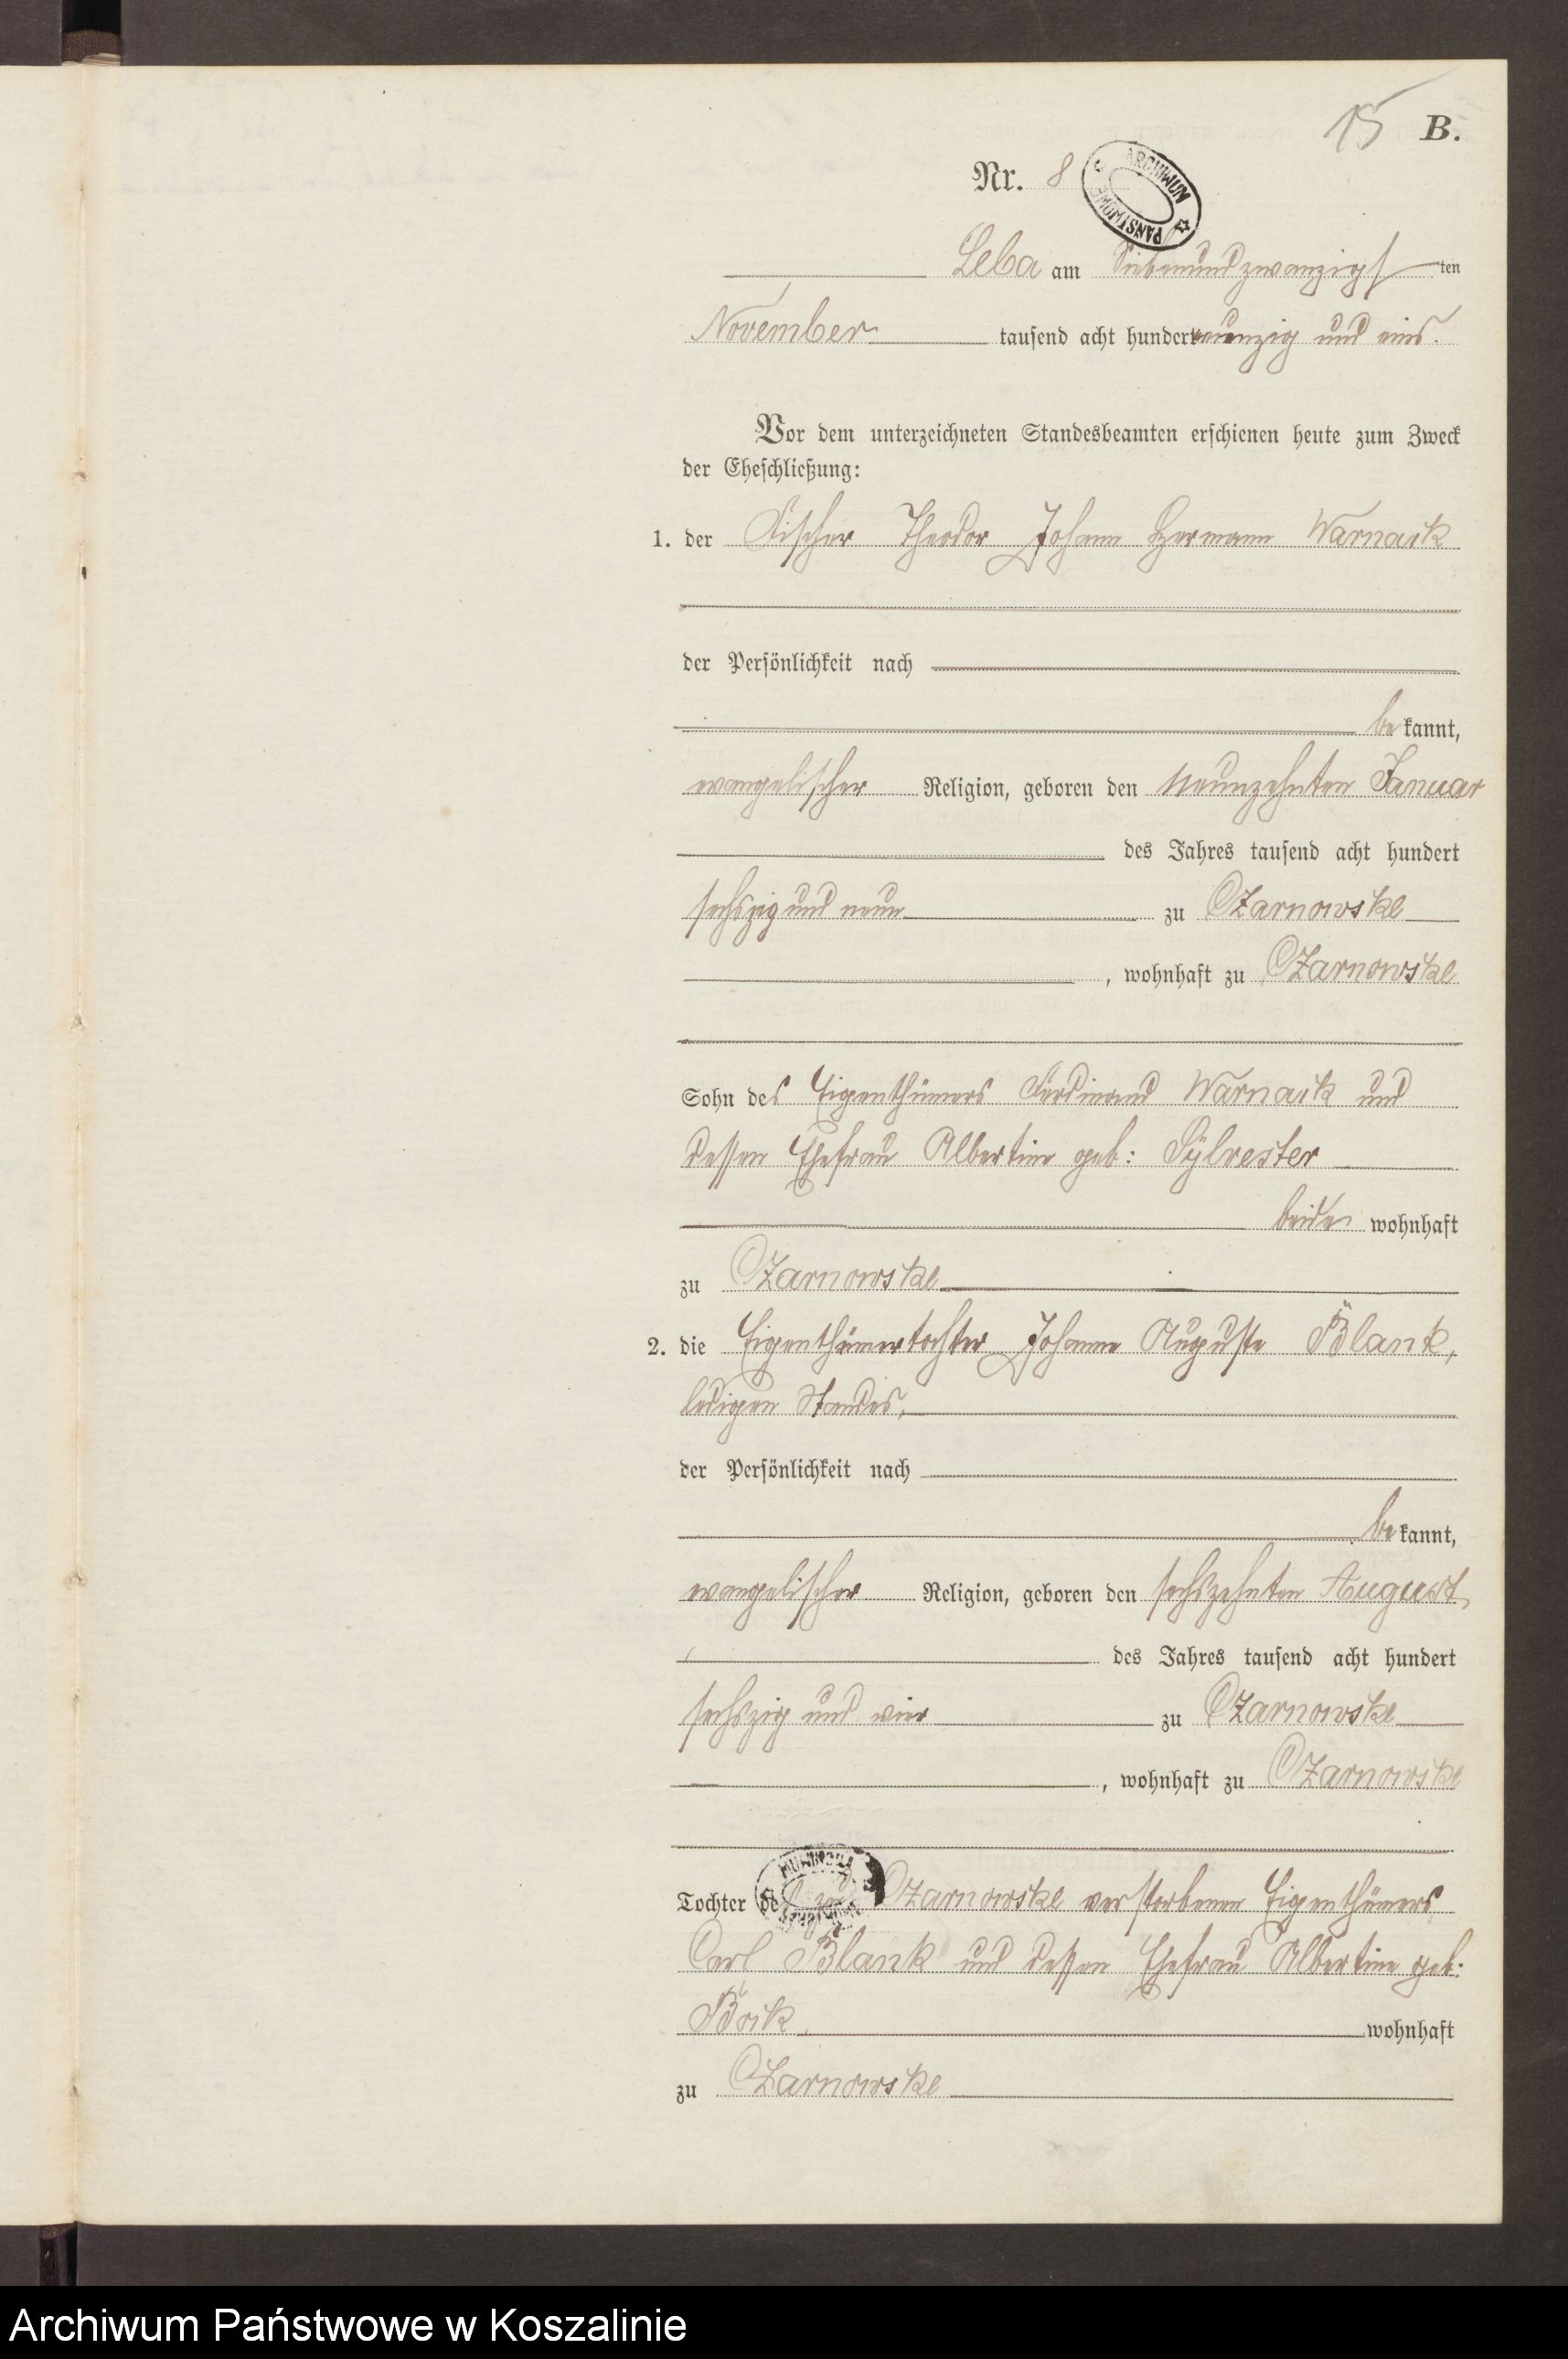 15 B.
Nr. 8
ARCHIWUM PAŃSTWOWE
Leba am Siebenundzwanzigsten
November tausend acht hundert neunzig und eins.
Vor dem unterzeichneten Standesbeamten erschienen heute zum Zweck
der Eheschließung:
1. der Fischer Theodor Johann Hermann Warnack
der Persönlichkeit nach
bekannt,
evangelischer Religion, geboren den neunzehnten Januar
des Jahres tausend acht hundert
sechszig und neun zu Czarnowske
, wohnhaft zu Czarnowske
Sohn des Eigenthümers Ferdinand Warnack und
dessen Ehefrau Albertine geb: Sylvester
beide wohnhaft
zu Czarnowske
2. die Eigenthümertochter Johanne Auguste Blank,
ledigen Standes,
der Persönlichkeit nach
bekannt,
evangelischer Religion, geboren den sechszehnten August
des Jahres tausend acht hundert
sechszig und vier zu Czarnowske
, wohnhaft zu Czarnowske
Tochter des zu Czarnowske verstorbenen Eigenthümers
Carl Blank und dessen Ehefrau Albertine geb:
wohnhaft
zu Czarnowske
Archiwum Państwowe w Koszalinie